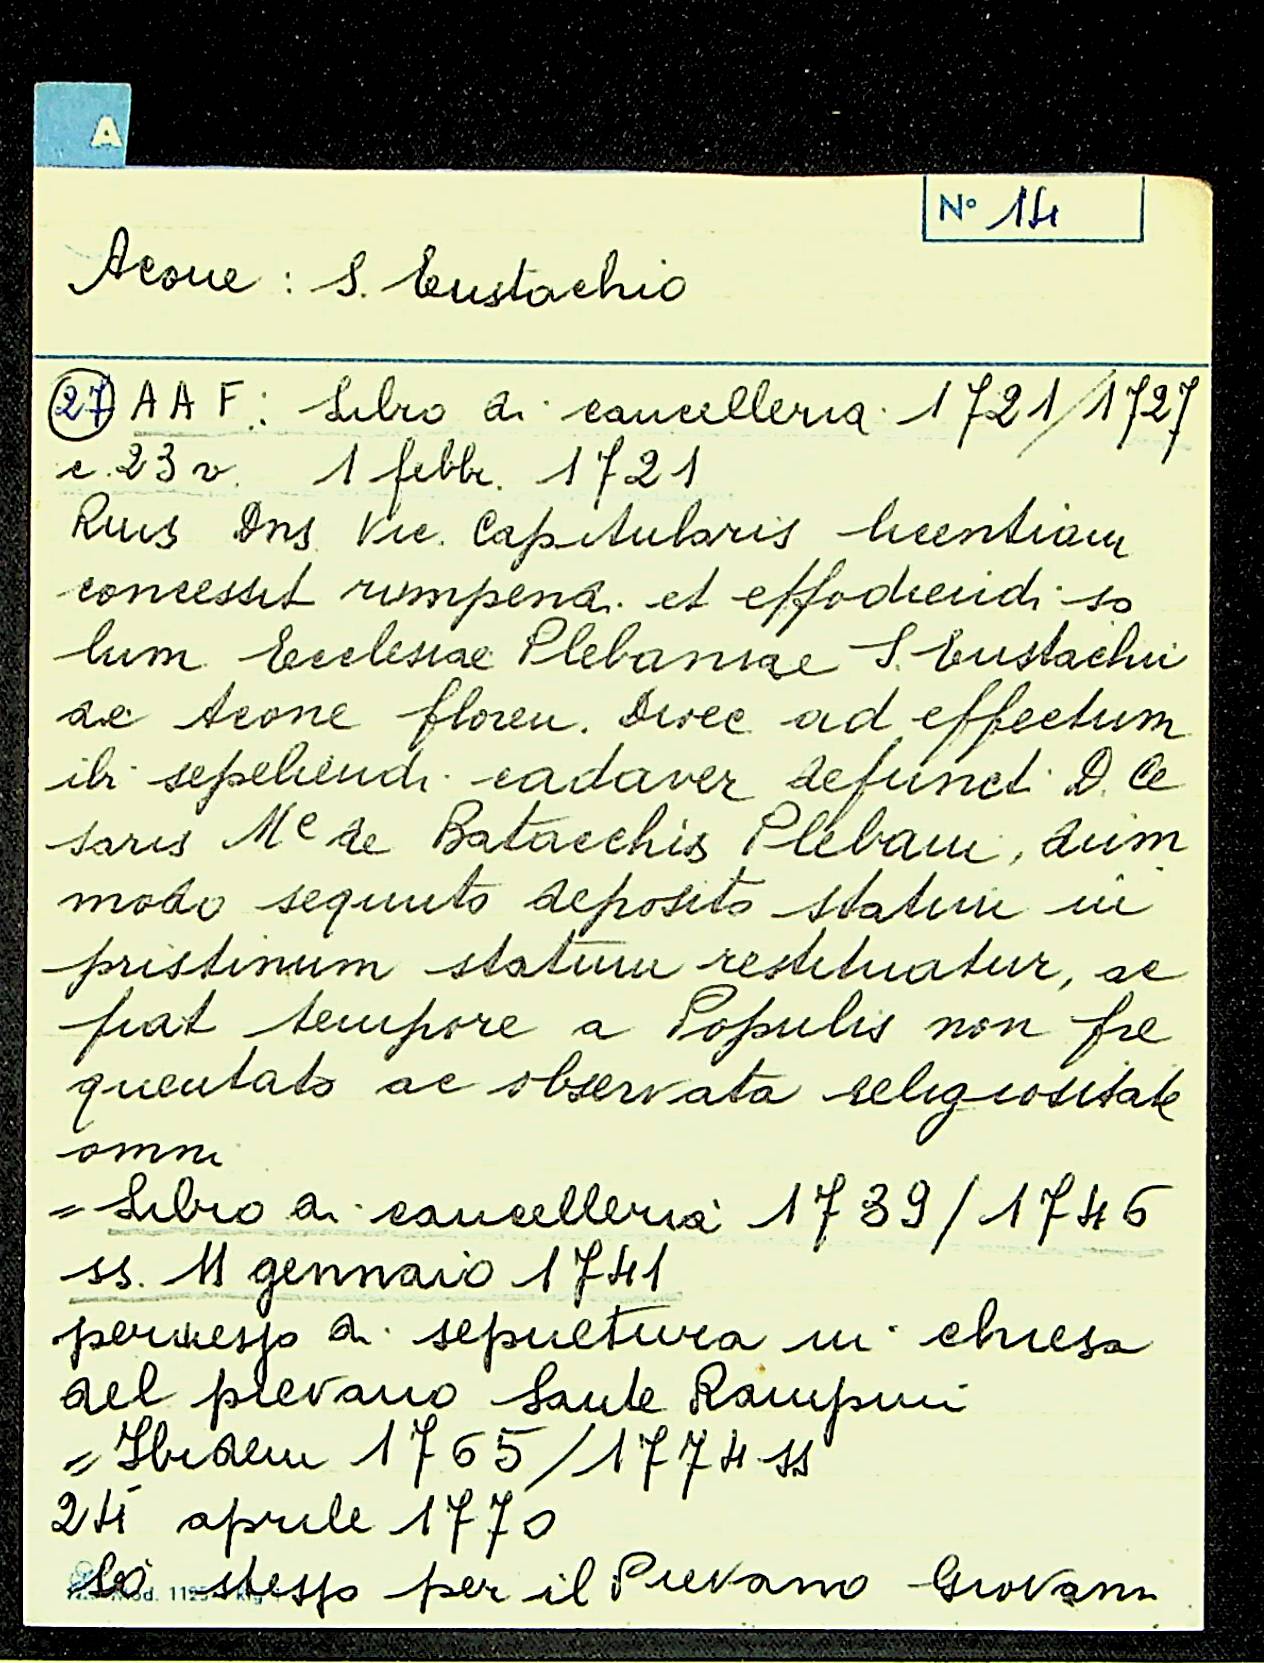 A
N° 14
Acone : S. Eustachio
27 A A F.: Libro di cancelleria 1721/1727
c. 23 v. 1 febbr. 1721
Rmus Dns Vic. Capitularis licentiam
concessit rumpendi et effodiendi so
lum Ecclesiae Plebaniae S. Eustachii
de Acone floren. Dioec ad effectum
ibi sepeliendi cadaver defuncti D. Ce
saris Mc de Batacchis Plebani, dum
modo sequuto deposito statim in
pristinum statum restituatur, ac
fiat tempore a Populis non fre
quentato ac observata religiositate
omni
= Libro di cancelleria 1739/1746
ss. 11 gennaio 1741
permesso di sepultura in chiesa
del pievano Sante Rampini
= Ibidem 1765/1774 ss
24 aprile 1770
Lo stesso per il Pievano Giovann